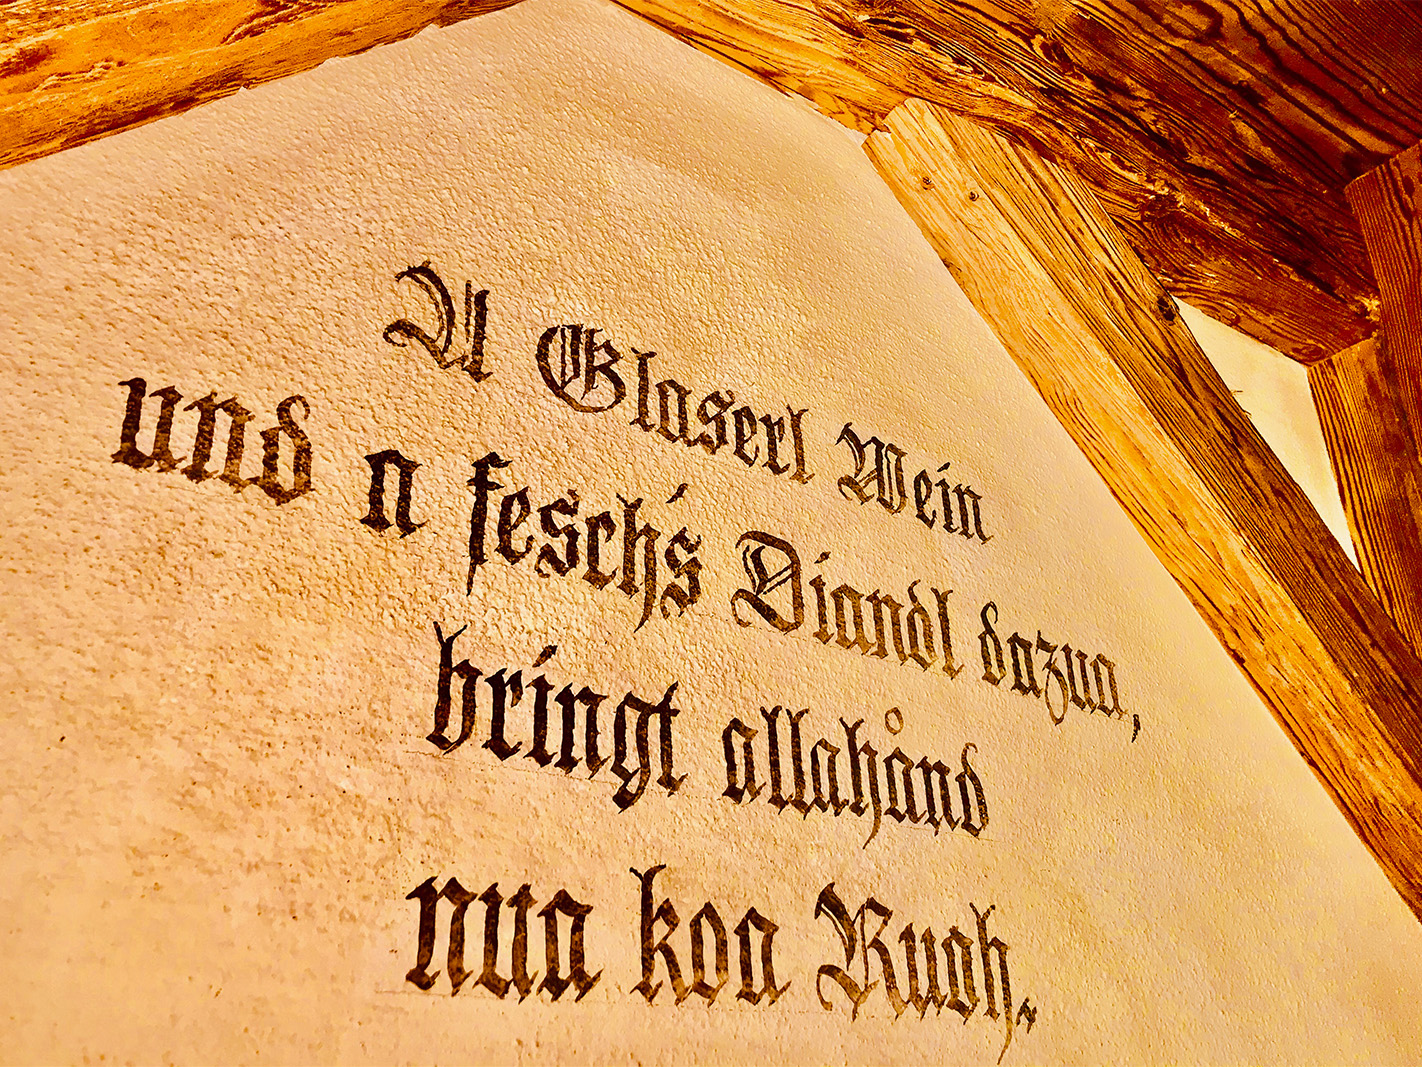 A Glaserl Wein
und a fesch's Diandl dazua,
bringt allahånd
nua koa Ruah.